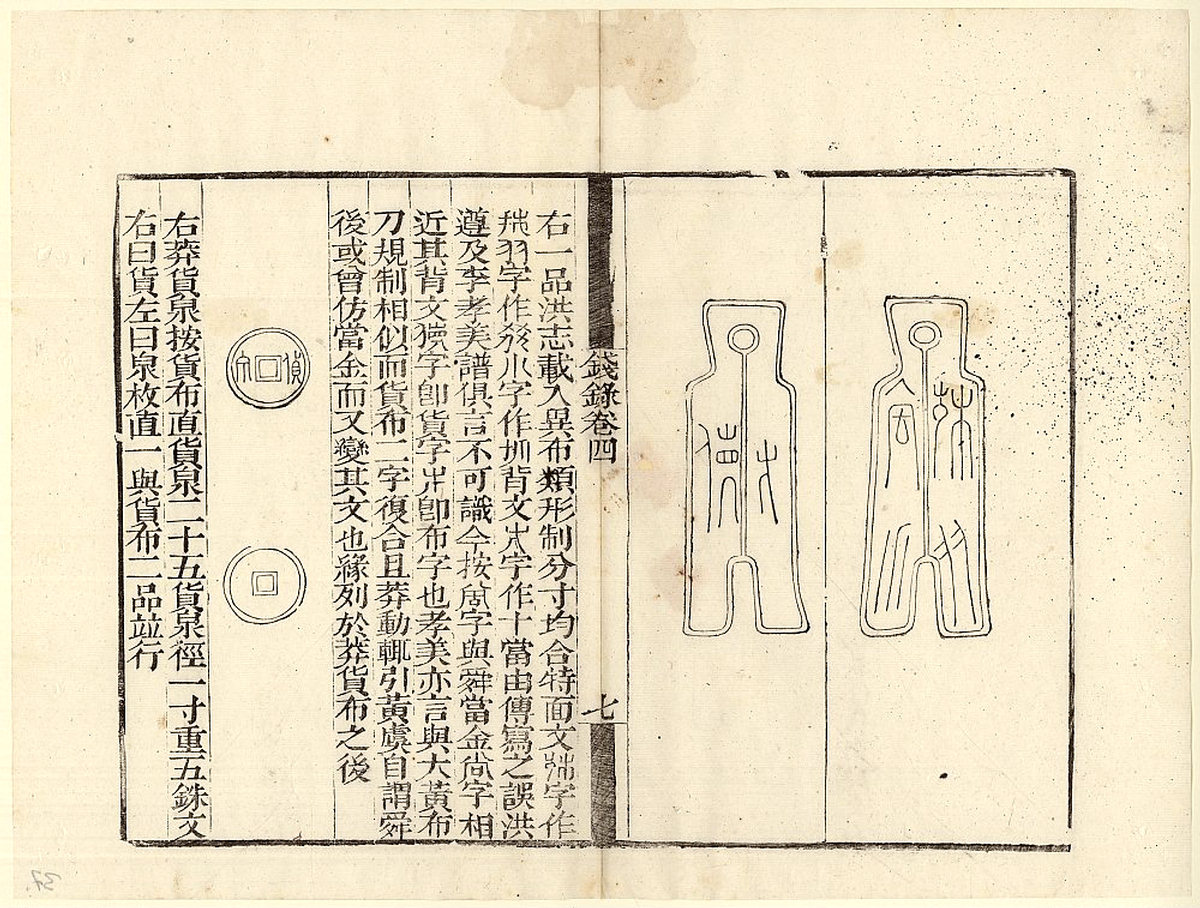 錢錄卷四
七
右一品洪志載入異布類形制分寸均合特面文字作
字作小字作背文字作十當由傳寫之誤洪
遵及李孝美譜俱言不可識今按字與舜當金字相
近其背文字卽貨字卽布字也孝美亦言與大黃布
刀規制相似而貨布二字復合且莽動輒引黃虞自謂舜
後或曾仿當金而又變其文也緣列於莽貨布之後
貨
右莽貨泉按貨布直貨泉二十五貨泉徑一寸重五銖文
右曰貨左曰泉枚直一與貨布二品並行
37.